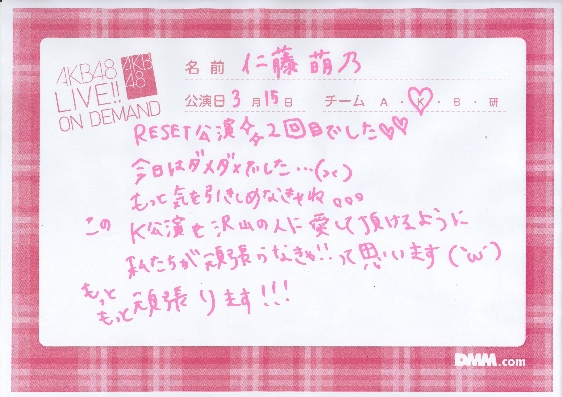 AKB48
LIVE!!
ON DEMAND
AKB
48
名前 仁藤萌乃
公演日 3月15日 チーム A・K・B・研
RESET公演☆☆2回目でした♡♡
今日はダメダメでした…(><)
もっと気を引きしめなきゃね。。。
このK公演も沢山の人に愛して頂けるように
私たちが頑張らなきゃ!!って思います(´ω`)
もっと
もっと頑張ります!!!
DMM.com